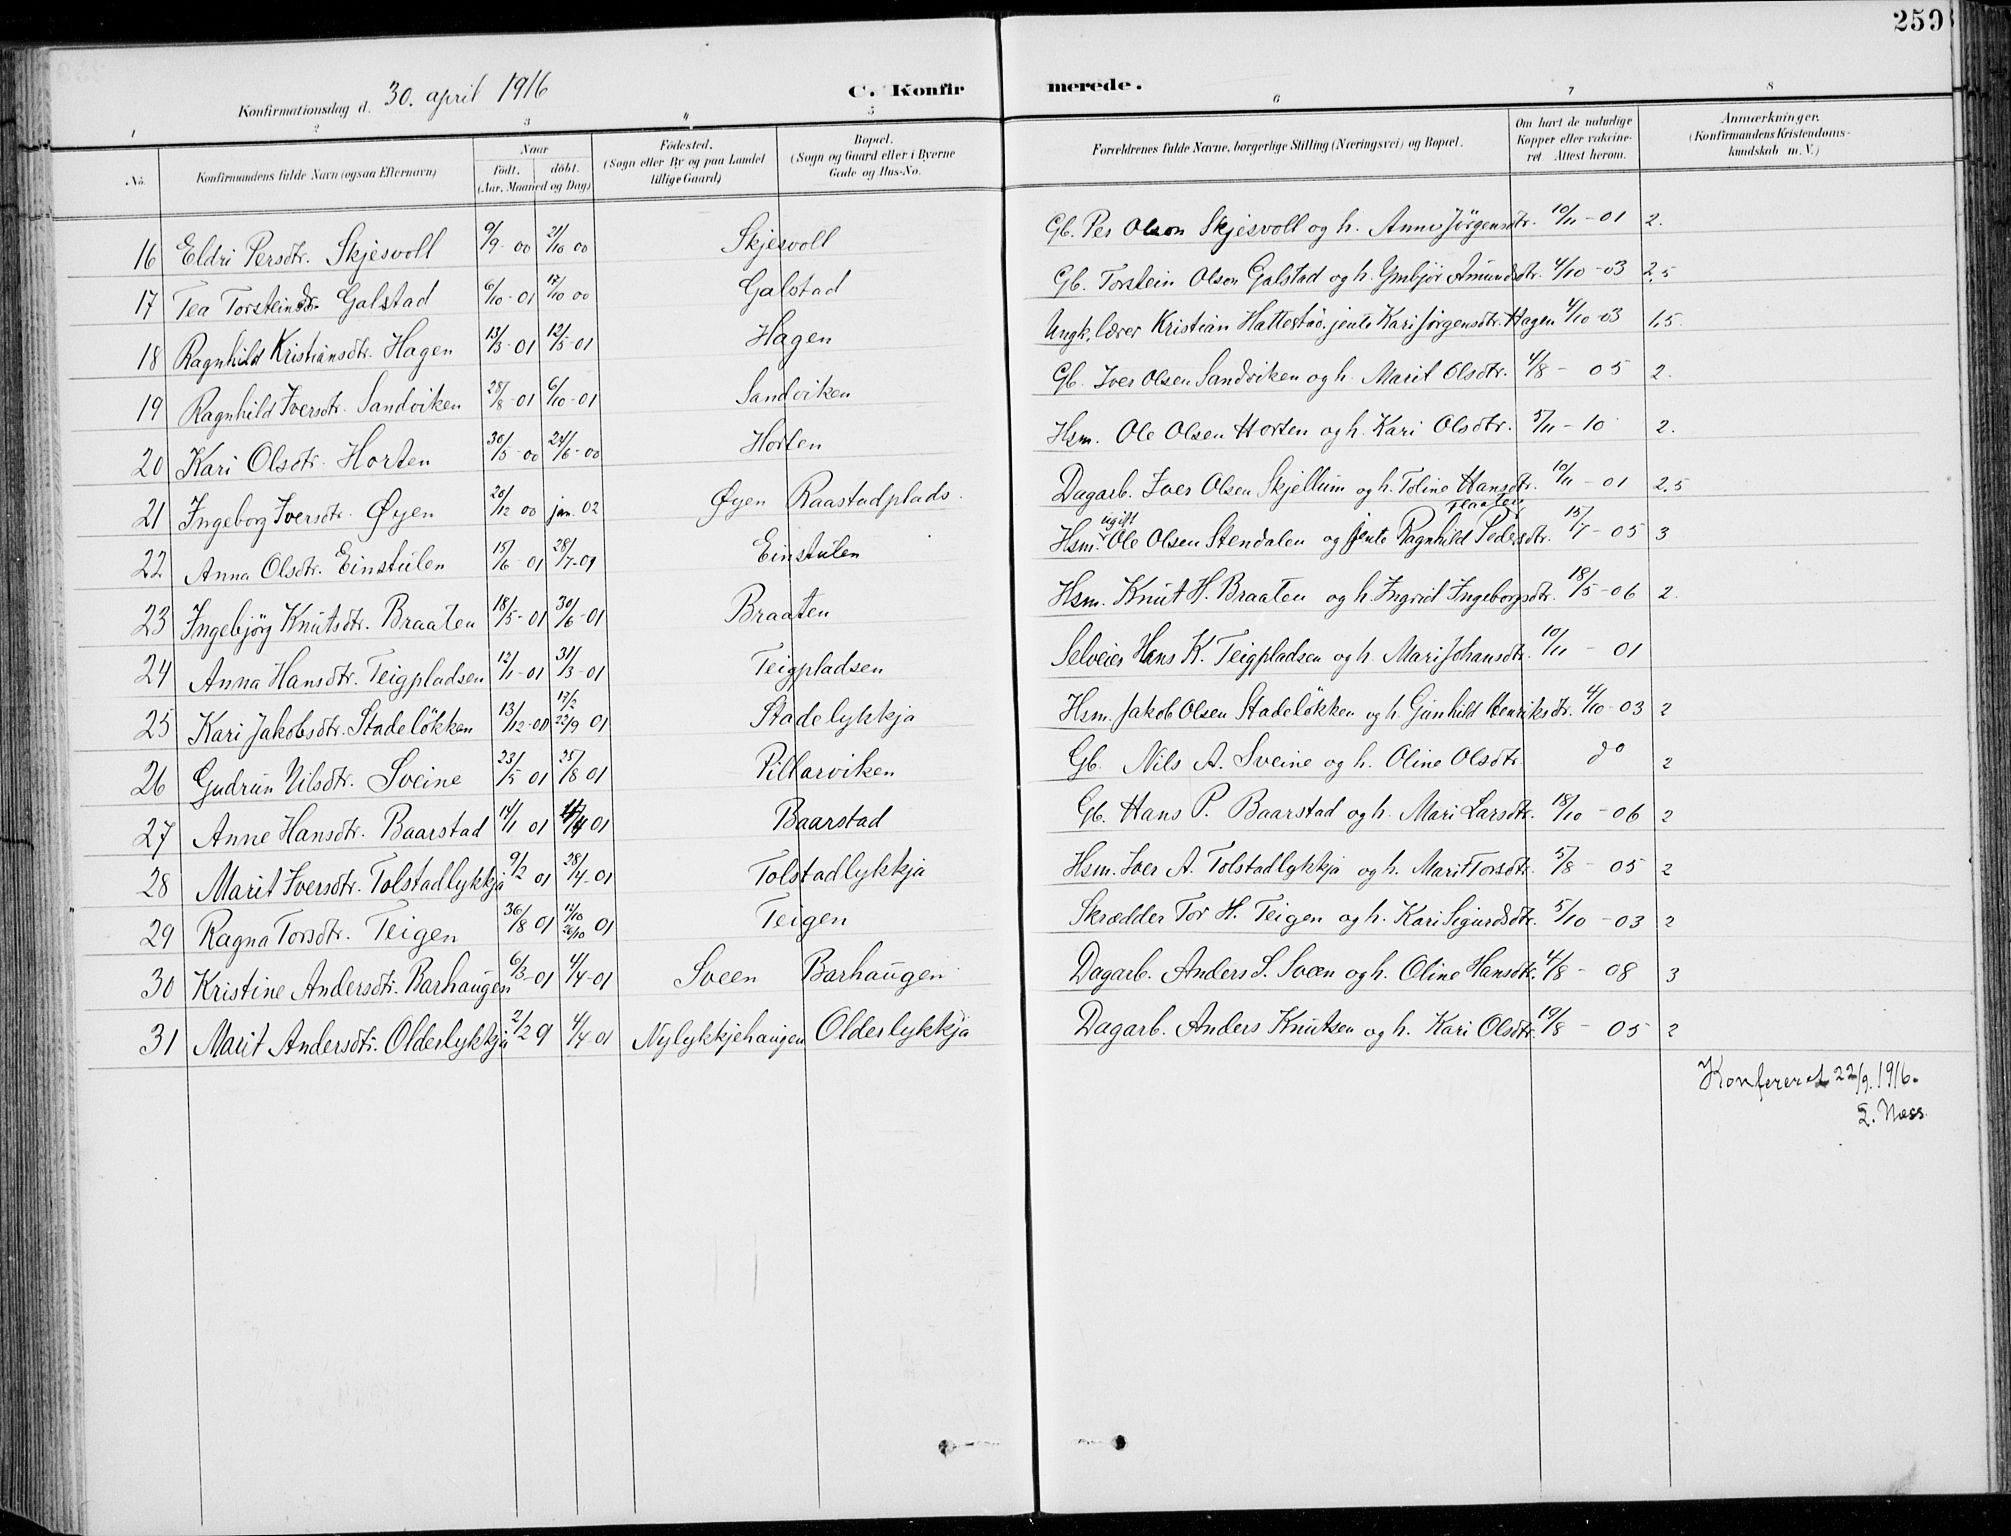 259
Konfirmationsdag d. 30. april 1916
C. Konfirmerede.
1 2 3 4 5 6 7 8
No. Konfirmandens fulde Navn (ogsaa Efternavn) Naar født, døbt. (Aar, Maaned og Dag) Fødested. (Sogn eller By og paa Landet tillige Gaard) Bopæl. (Sogn og Gaard eller i Byerne Gade og Hus-No. Forældrenes fulde Navne, borgerlige Stilling (Næringsvei) og Bopæl. Om havt de naturlige Kopper eller vaccineret. Attest herom. Anmærkninger. (Konfirmandens Kristendomskundskab m. V.)
16 Eldri Persdtr. Skjesvoll 9/9 00 21/10 00 Skjesvoll Gb. Per Olson Skjesvoll og h. Anne Jörgensdtr. 10/11 - 01 2.
17 Tea Torsteinsdr. Galstad 6/10 - 01 17/10 00 Galstad Gb. Torstein Olson Galstad og h. Ymbjör Amundsdtr. 4/10 - 03 2,5
18 Ragnhild Kristiansdtr. Hagen 13/3 - 01 12/5 - 01 Hagen Ungk. lærer Kristian Hattestad. jente Kari Jörgensdtr. Hagen 4/10 - 03 1,5
19 Ragnhild Iversdtr. Sandviken 28/8 - 01 6/10 - 01 Sandviken Gb. Iver Olsen Sandviken og h. Marit Olsdtr. 4/8 - 05 2.
20 Kari Olsdtr. Horten 30/5 - 00 24/6 - 00 Horten Hsm. Ole Olsen Horten og h. Kari Olsdtr. 5/11 - 10 2.
21 Ingeborg Iversdtr. Øyen 20/12 00 jan. 02 Øyen Raastadplads. Dagarb. Iver Olsen Skjellum og h. Toline Hansdtr. 10/11 - 01 2,5
22 Anna Olsdtr. Einstulen 15/6 - 01 28/7 - 01 Einstulen Hsm. ugift Ole Olsen Stendalen og jente Ragnhild Pedersdtr. 15/7 - 05 3
23 Ingebjörg Knutsdtr. Braaten 18/5 - 01 30/6 - 01 Braaten Hsm. Knut H. Braaten og h. Ingrid Ingeborgsdtr. 18/5 - 06 2.
24 Anna Hansdtr. Teigpladsen 12/1 - 01 31/3 - 01 Teigpladsen Selveier Hans K. Teigpladsen og h. Mari Johansdtr. 10/11 - 01
25 Kari Jakobsdtr. Stadelökken 13/12 - 00 17/2 22/9 01 Stadelykkja Hsm. Jakob Olsen Stadelökken og h. Gunhild Henriksdr. 4/10 - 03 2
26 Gudrun Nilsdtr. Sveine 23/5 01 25/8 01 Pillarviken Gb. Nils A. Sveine og h. Oline Olsdtr. do 2
27 Anne Hansdtr. Baarstad 14/1 01 14/4 01 Baarstad Gb. Hans P. Baarstad og h. Mari Larsdtr. 18/10 - 06 2
28 Marit Iversdtr. Tolstadlykkja 9/2 01 28/4 - 01 Tolstadlykkja Hsm. Iver A. Tolstadlykkja og h. Marit Torsdtr. 5/8 - 05 2
29 Ragna Torsdtr. Teigen 8 01 12/10 26/10 01 Teigen Skrædder Tor H. Teigen og h. Kari Sigurdsdtr. 5/10 - 03 2
30 Kristine Andersdtr. Barhaugen 6/3 - 01 4/4 - 01 Sveen Barhaugen Dagarb. Anders S. Sveen og h. Oline Hansdtr. 4/8 - 08 3
31 Marit Andersdtr. Olderlykkja 2/2 9 4/4 01 Nylykkjehaugen Olderlykkja Dagarb. Anders Knutsen og h. Kari Olsdtr. 19/8 - 05 2
Konfereret 22/9. 1916.
E. Næss.